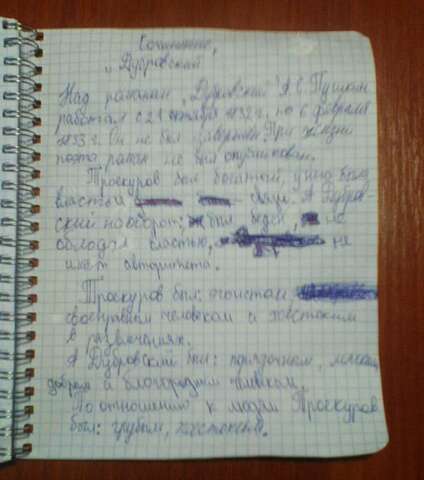 Сочинение,
„Дубровский"
Над романом „Дубровский" А.С. Пушкин
работал с 21 октября 1832 г, по 6 февраля
1833 г. Он не был завершен. При жизни
поэта, роман не был опубликован.
Троекуров был богатой, у него была
власть и связи. А Дубров-
ский наоборот: был беден, не
обладал властью, не
имел авторитета.
Троекуров был: эгоистом
своенравным человеком и жестоким
в развлечениях.
А Дубровский был: порядочным,
добрым и благородным человеком.
По отношению к людям Троекуров
был: грубым, жестоким.